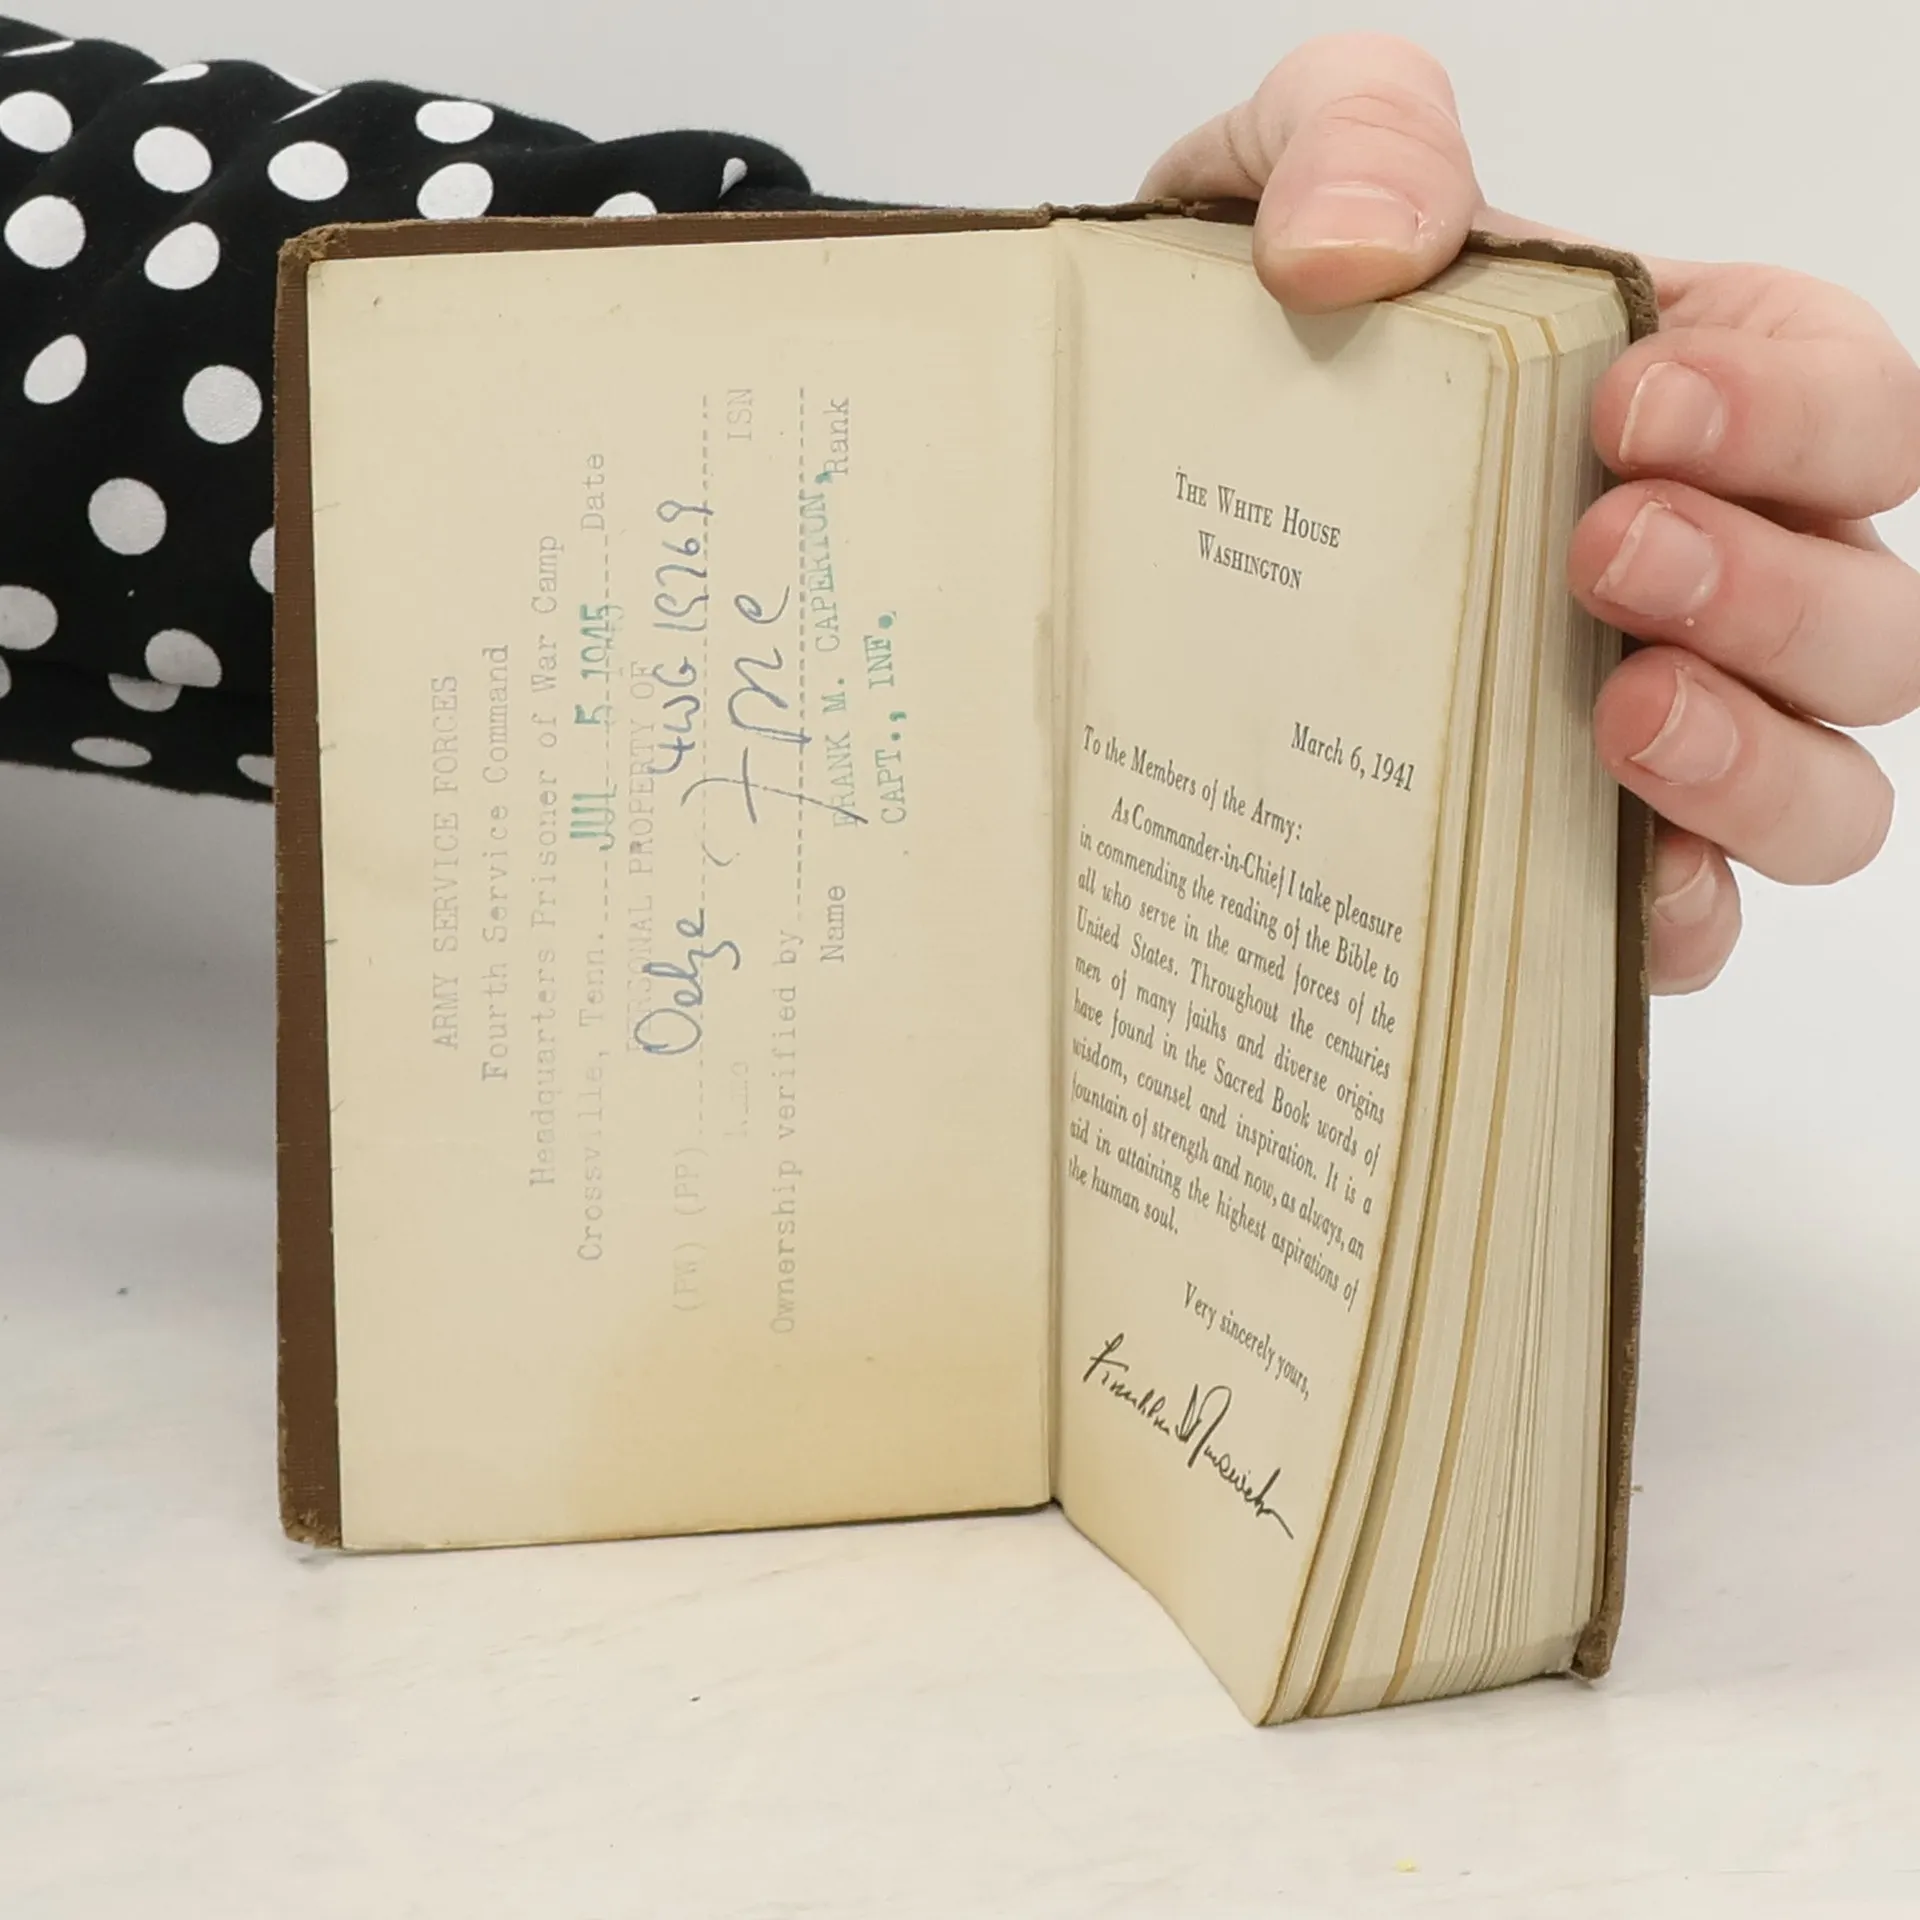 ARMY SERVICE FORCES
Fourth Service Command
Headquarters Prisoner of War Camp
Crossville, Tenn.....JUL 5 1945....Date
PERSONAL PROPERTY OF
(PW) (PP)......Oelze 4WG 19269
ISN
Ownership verified by
Name FRANK M. CAPERTON, Rank
CAPT., INF.
THE WHITE HOUSE
WASHINGTON
March 6, 1941
To the Members of the Army:
As Commander-in-Chief I take pleasure
in commending the reading of the Bible to
all who serve in the armed forces of the
United States. Throughout the centuries
men of many faiths and diverse origins
have found in the Sacred Book words of
wisdom, counsel and inspiration. It is a
fountain of strength and now, as always, an
aid in attaining the highest aspirations of
the human soul.
Very sincerely yours,
Franklin D Roosevelt